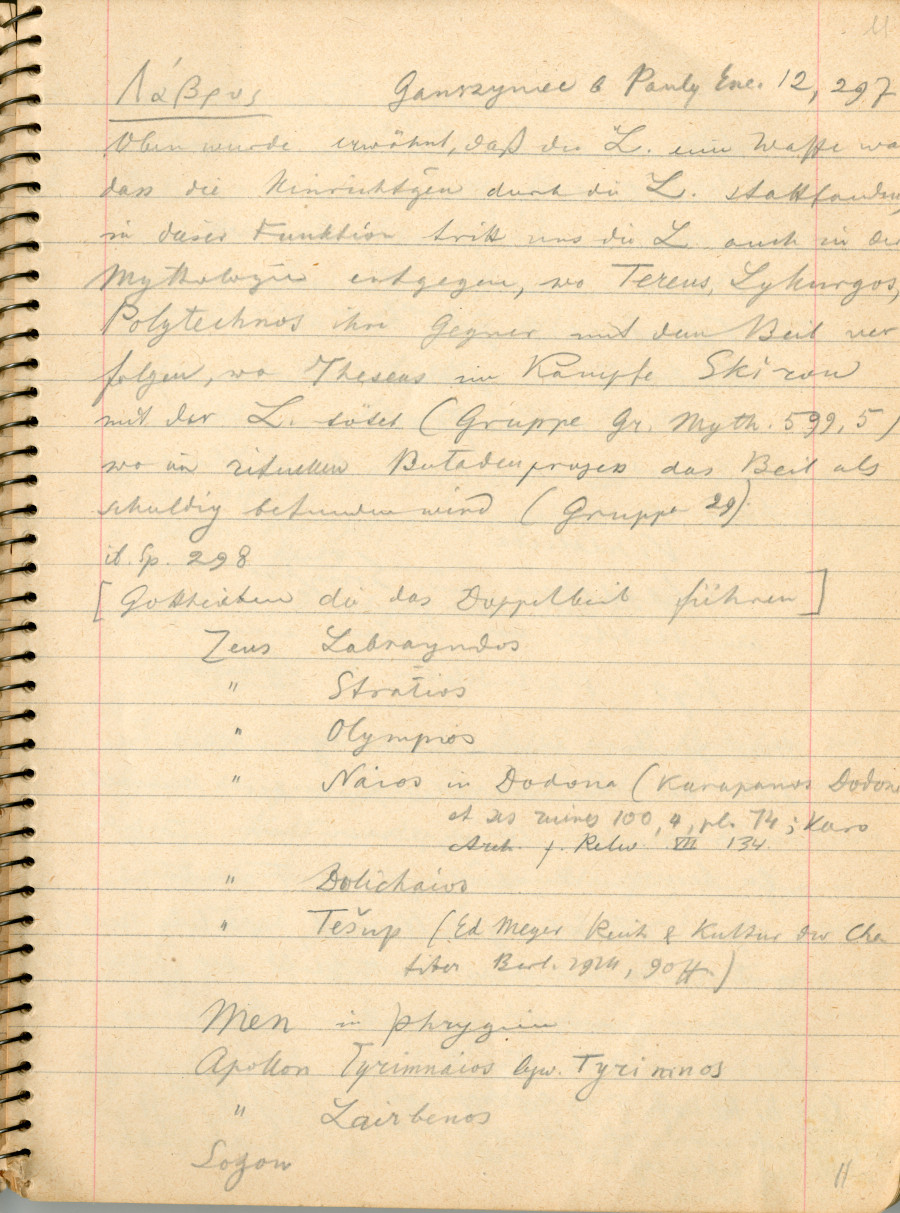 11
Λάβρυς Ganszyniec b Pauly Enc. 12, 297
Oben wurde erwähnt, daß die L. eine Waffe wa
dass die Hinrichtgen durch die L. stattfanden,
in dieser Funktion tritt uns die L auch in der
Mythologie entgegen, wo Tereus, Lykurgos,
Polytechnos ihre Gegner mit dem Beil ver
folgen, wo Theseus im Kampfe Skiron
mit der L. tötet (Gruppe Gr. Myth. 599, 5)
wo im rituellen Butadenprozess das Beil als
schuldig befunden wird (Gruppe 29)
ib. Sp. 298
[Gottheiten die das Doppelbeil führen]
Zeus Labrayndos
" Stratios
" Olympios
" Náios in Dodona (Karapanos Dodone
et ses ruines 100, 4, pl. 74; Karo
Arch. f. Relw. VII 134.
" Dolichaios
" Tešup (Ed Meyer Reich & Kultur der Che
titer Berl. 1914, 90ff.)
Men in Phrygien
Apollon Tyrimnáios bzw. Tyrimnos
" Lairbenos
Sozon
11